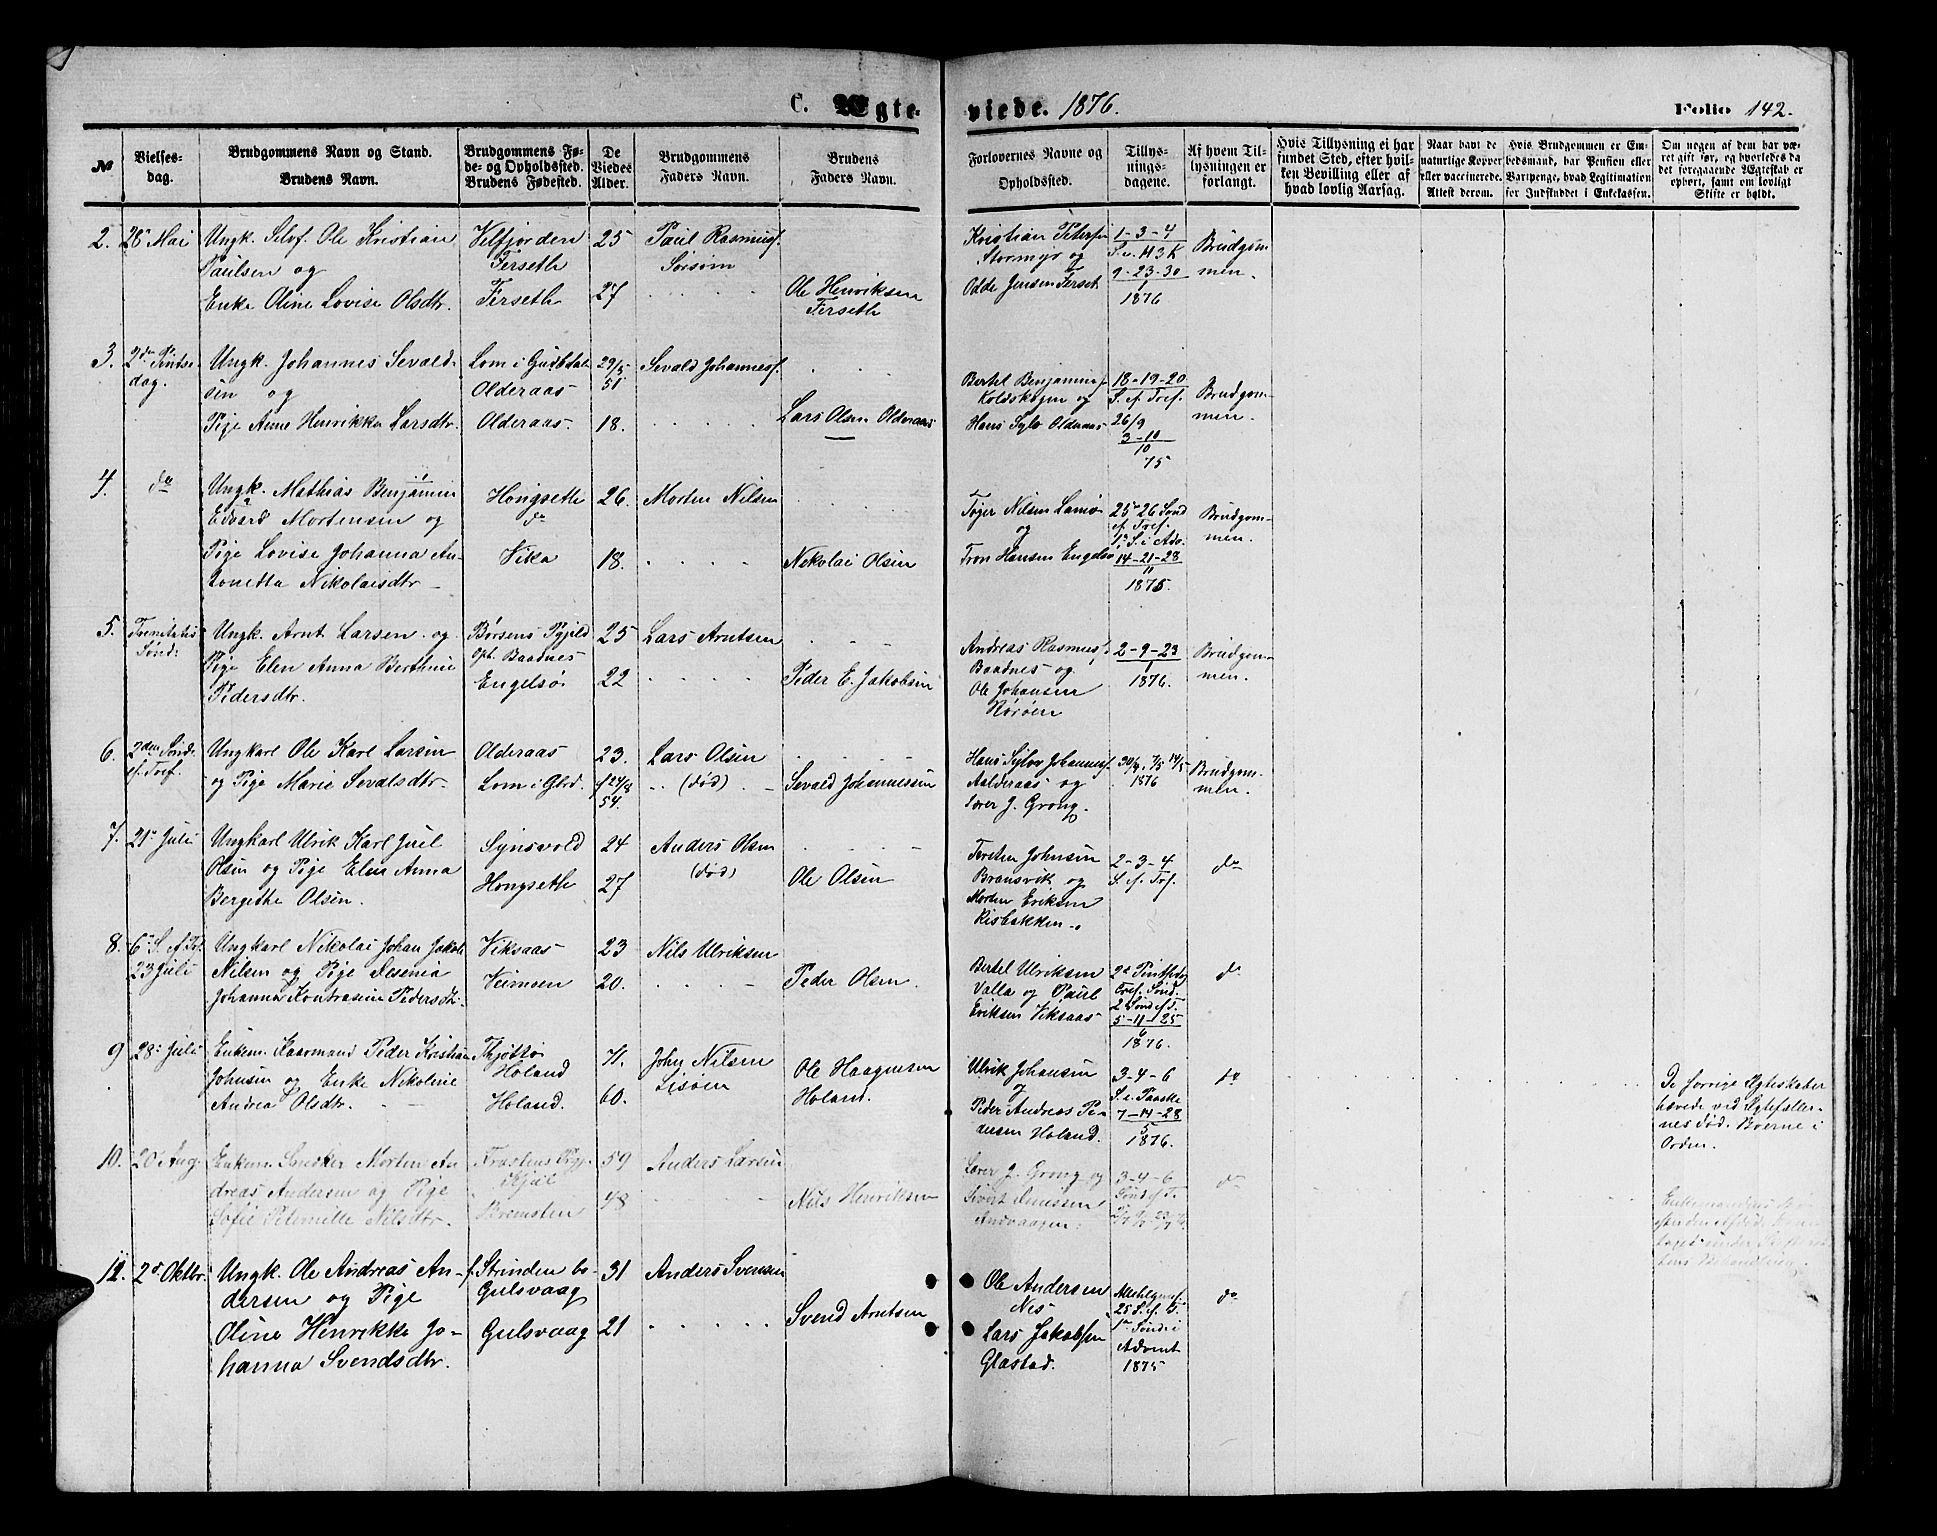 C. Ægteviede. 1876. Folio 142.
№
Vielsesdag.
Brudgommens Navn og Stand.
Brudens Navn.
Brudgommens Føde- og Opholdssted.
Brudens Fødested.
De Viedes Alder.
Brudgommens Faders Navn.
Brudens Faders Navn.
Forlovernes Navne og Opholdsted.
Tillysningsdagene.
Af hvem Tillysningen er forlangt.
Hvis Tillysning ei har fundet Sted, efter hvilken Bevilling eller af hvad lovlig Aarsag.
Naar havt de naturlige Kopper eller vaccinerede. Attest derom.
Hvis Brudgommen er Embedsmand, har Pension eller Vartpenge, hvad Legitimation for Indskuddet i Enkekassen.
Om nogen af dem har været gift før, og hvorledes da det foregaaende Ægteskab er ophørt, samt om lovligt Skifte er holdt.
2. 28 Mai
Ungk. Selvf. Ole Kristian
Paulsen og
Enke Oline Lovise Olsdtr.
Velfjorden
Ferseth
Ferseth
25
27
Paul Rasmusf.
Sørsøm
Ole Henriksen
Ferseth
Kristian Petersen
Stormyr og
Odde Jensen Ferset
1-3-4
S. v. H3K
9-23-30
1
1876
Brudgommen.
3. 2den Pintsedag.
Ungk. Johannes Sevaldsen og
Pige Anne Henrikke Larsdtr.
Lom i Gudbdal
Olderaas
Olderaas.
29/5 51
18.
Sevald Johannesf.
Lars Olsen Olderaas
Bertel Benjamins
Koldskogen og
Hans Sylv. Olderaas
18-19-20
S. ef. Tref.
26/9
3-10
10
75
Brudgommen.
4. do
Ungk. Mathias Benjamin
Edvard Mortensen og
Pige Lovise Johanna Antonetta Nikolaisdtr
Hongseth
do
Vika
26.
18.
Morten Nilsen
Nikolai Olsen
Tøger Nilsen
og
Tron Hansen Engelsø
25-26 Sønd
ef. Tref.
1ste S. i Adv.
14-21-28
11
1875.
Brudgommen.
5. Trinitatis Sønd:
Ungk. Arnt Larsen og
Pige Elen Anna Berthine
Pedersdtr.
Børsens Pgjeld
oph. Baadnes
Engelsø
25
22
Lars Arntsen
Peder E. Jakobsen
Andreas Rasmus
Baadnes og
Ole Johansen
Nørøen
2-9-23
1
1876.
Brudgommen.
6. 2den Sønd. ef. Tref.
Ungkarl Ole Karl Larsen
og Pige Marie Sevalsdtr.
Olderaas
Lom i Gbrd.
23.
f 24/8 54.
Lars Olsen
(død)
Sevald Johannessen
Hans Sylv. Johannesf.
Aalderaas og
Lærer J. Grong
30/4 7/5 14/5
1876
Brudgommen.
7. 21de Juli
Ungkarl Ulrik Karl Juel
Olsen og Pige Elen Anna
Bergethe Olsen.
Synsvold
Hongseth
24
27
Anders Olsen
(død)
Ole Olsen
Johnsen
Brænsvik og
Morten Eriksen
Risbakken.
2-3-4
S. ef. Trf.
do
8. 6te S. A. Tr.
23 Juli
Ungkarl Nikolai Johan Jakob
Nilsen og Pige Desenia
Johanna Konradine Pedersdtr.
Viksaas
Veimoen
23
20.
Nils Ulriksen
Peder Olsen.
Bertel Ulriksen
Valla og Paul
Eriksen Viksaas
2d Pintsedag
Tref. Sønd.
2 Sønd ef T.
5-11-25
6
1876.
do
9 28de Juli
Enkem. Kaarmand Peder Kristian
Johnsen og Enke Nikoline
Andrea Olsdtr.
Thjøttø
Holand
Holand.
71.
60.
John Nilsen
Lisøen
Ole Haagensen
Holand.
Ulrik Johansen
Peder Andreas Pedersen Holand.
3-4-6
S. e. Paaske
7-14-28
5
1876.
do
De forrige Ægteskaber
hævede ved Ægtefællernes Død. Boerne i
Orden.
10. 20de Aug.
Enkem. Snedker Morten Andreas Andersen og Pige
Sofie Peternille Nilsdtr.
Frostens Pgj.
Kjul
Bremsten
59
48
Anders Larsen
Nils Henriksen
Lærer J. Grong og
Sivert Denissen
Andvaagen.
3-4-6
Sønd ef T.
do
11. 2d Oktbr.
Ungk. Ole Andreas Andersen og Pige
Oline Henrikke Johanna Svendsdtr.
f. Strinden bo
Gulsvaag
Gulsvaag
31
21
Anders Svensen
Svend Arntsen
Ole Andersen
Nes
Lars Jakobsen
Glastad.
Allehlgensf.
25 S. ef. T.
1ste Sønd i
Advent
1875
do